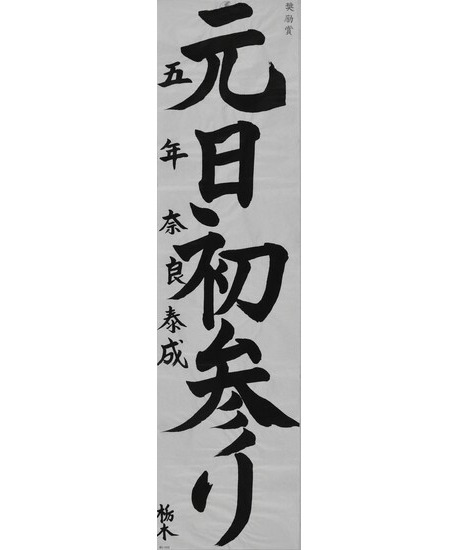 奨励賞
元日初参り
五年 奈良泰成
栃木